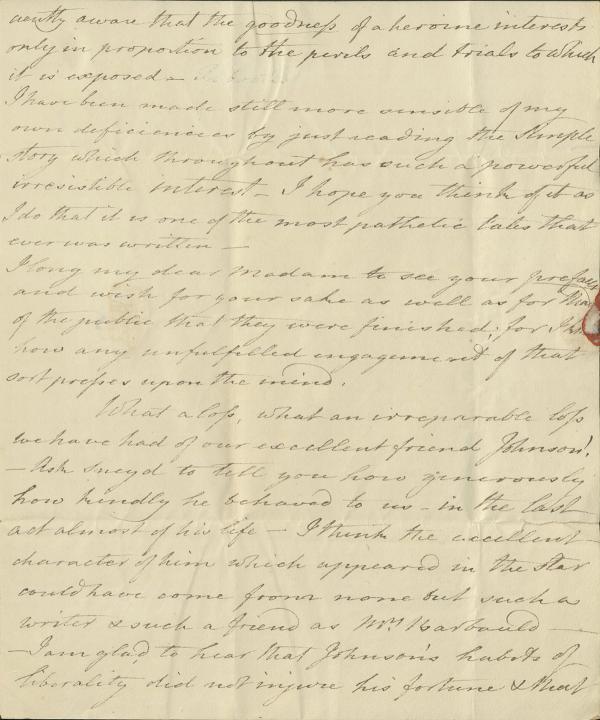 aware that the goodness of a heroine interests
only in proportion to the perils and trials to which
it is exposed –
I have been made still more sensible of my
own deficiencies by just reading the Simple
Story which throughout has such a powerful
irresistible interest – I hope you think of it as
I do that it is one of the most pathetic tales that
ever was written –
I long my dear Madam to see your prefaces
and wish for your sake as well as for that
of the public that they were finished; for I
how any unfulfilled engagement of that
sort presses upon the mind.
What a loss, what an irreparable loss
we have had of our excellent friend Johnson!
– Ask Sneyd to tell you how generously
how kindly he behaved to us – in the last
act almost of his life – I think the excellent
character of him which appeared in the Star
could have come from none but such a
writer & such a friend as Mrs Barbauld –
– I am glad to hear that Johnson's habits of
liberality did not injure his fortune & that